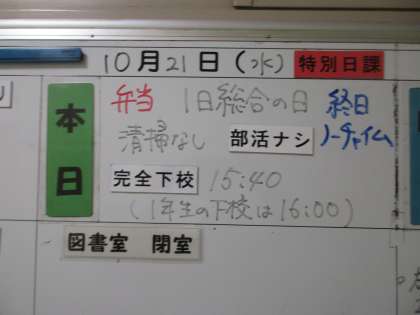 10月21日(水) 特別日課
本日
弁当 1日総合の日 終日
清掃なし 部活ナシ ノーチャイム
完全下校 15:40
(1年生の下校は16:00)
図書室 閉室